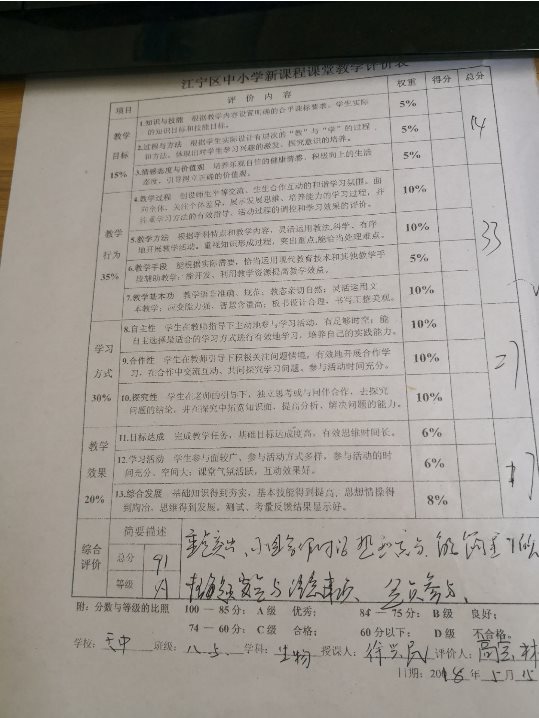 江宁区中小学新课程课堂教学评价表
项目 评 价 内 容 权重 得分 总分
教学目标 15%
1.知识与技能 根据教学内容设置明确的合乎课标要求、学生实际 5%
的知识目标和技能目标。
2.过程与方法 根据学生实际设计有层次的“教”与“学”的过程 5%
和方法。体现出对学生学习兴趣的激发、探究意识的培养。
3.情感态度与价值观 培养乐观自信的健康情感,积极向上的生活 5%
态度,引导树立正确的价值观。
14
教学行为 35%
4.教学过程 创设师生平等交流、生生合作互动的和谐学习氛围。面 10%
向全体,关注个体差异。展示发展思维、培养能力的学习过程,并
注重学习方法的有效指导、活动过程的调控和学习效果的评价。
5.教学方法 根据学科特点和教学内容,灵活运用教法.科学、有序 10%
地开展教学活动。重视知识形成过程,突出重点,能恰当处理难点。
6.教学手段 能根据实际需要,恰当运用现代教育技术和其他教学手 5%
段辅助教学;能开发、利用教学资源提高教学效益。
7.教学基本功 教学语言准确、规范;教态亲切自然;灵活运用文 10%
本教学;应变能力强、智慧含量高;板书设计合理,书写工整美观。
33
学习方式 30%
8.自主性 学生在教师指导下主动地参与学习活动,有足够时空;能 10%
自主选择最适合的学习方式进行有效地学习,培养自己的实践能力。
9.合作性 学生在教师引导下积极关注问题情境,有效地开展合作学 10%
习,在合作中交流互动、共同探究学习问题。参与活动时间充分。
10.探究性 学生在老师的引导下,独立思考或与同伴合作,去探究 10%
问题的结论,并在探究中拓宽知识面,提高分析、解决问题的能力。
27
教学效果 20%
11.目标达成 完成教学任务,基础目标达成度高,有效思维时间长。 6%
12.学习活动 学生参与面较广、参与活动方式多样,参与活动的时 6%
间充分、空间大;课堂气氛活跃,互动效果好。
13.综合发展 基础知识得到夯实,基本技能得到提高,思想情操得 8%
到陶冶,思维得到发展。测试、考量反馈结果显示好。
17
综合评价 简要描述
重点突出、小组合作
总分 91
等级 A
全员参与
附:分数与等级的比照 100 — 85 分:A 级 优秀; 84 — 75 分:B 级 良好;
74 — 60 分:C 级 合格; 60 分以下: D 级 不合格。
学校: 天中 班级: 八.5. 学科: 生物 授课人: 徐兴民 评价人:
日期:2018 年 5 月 15